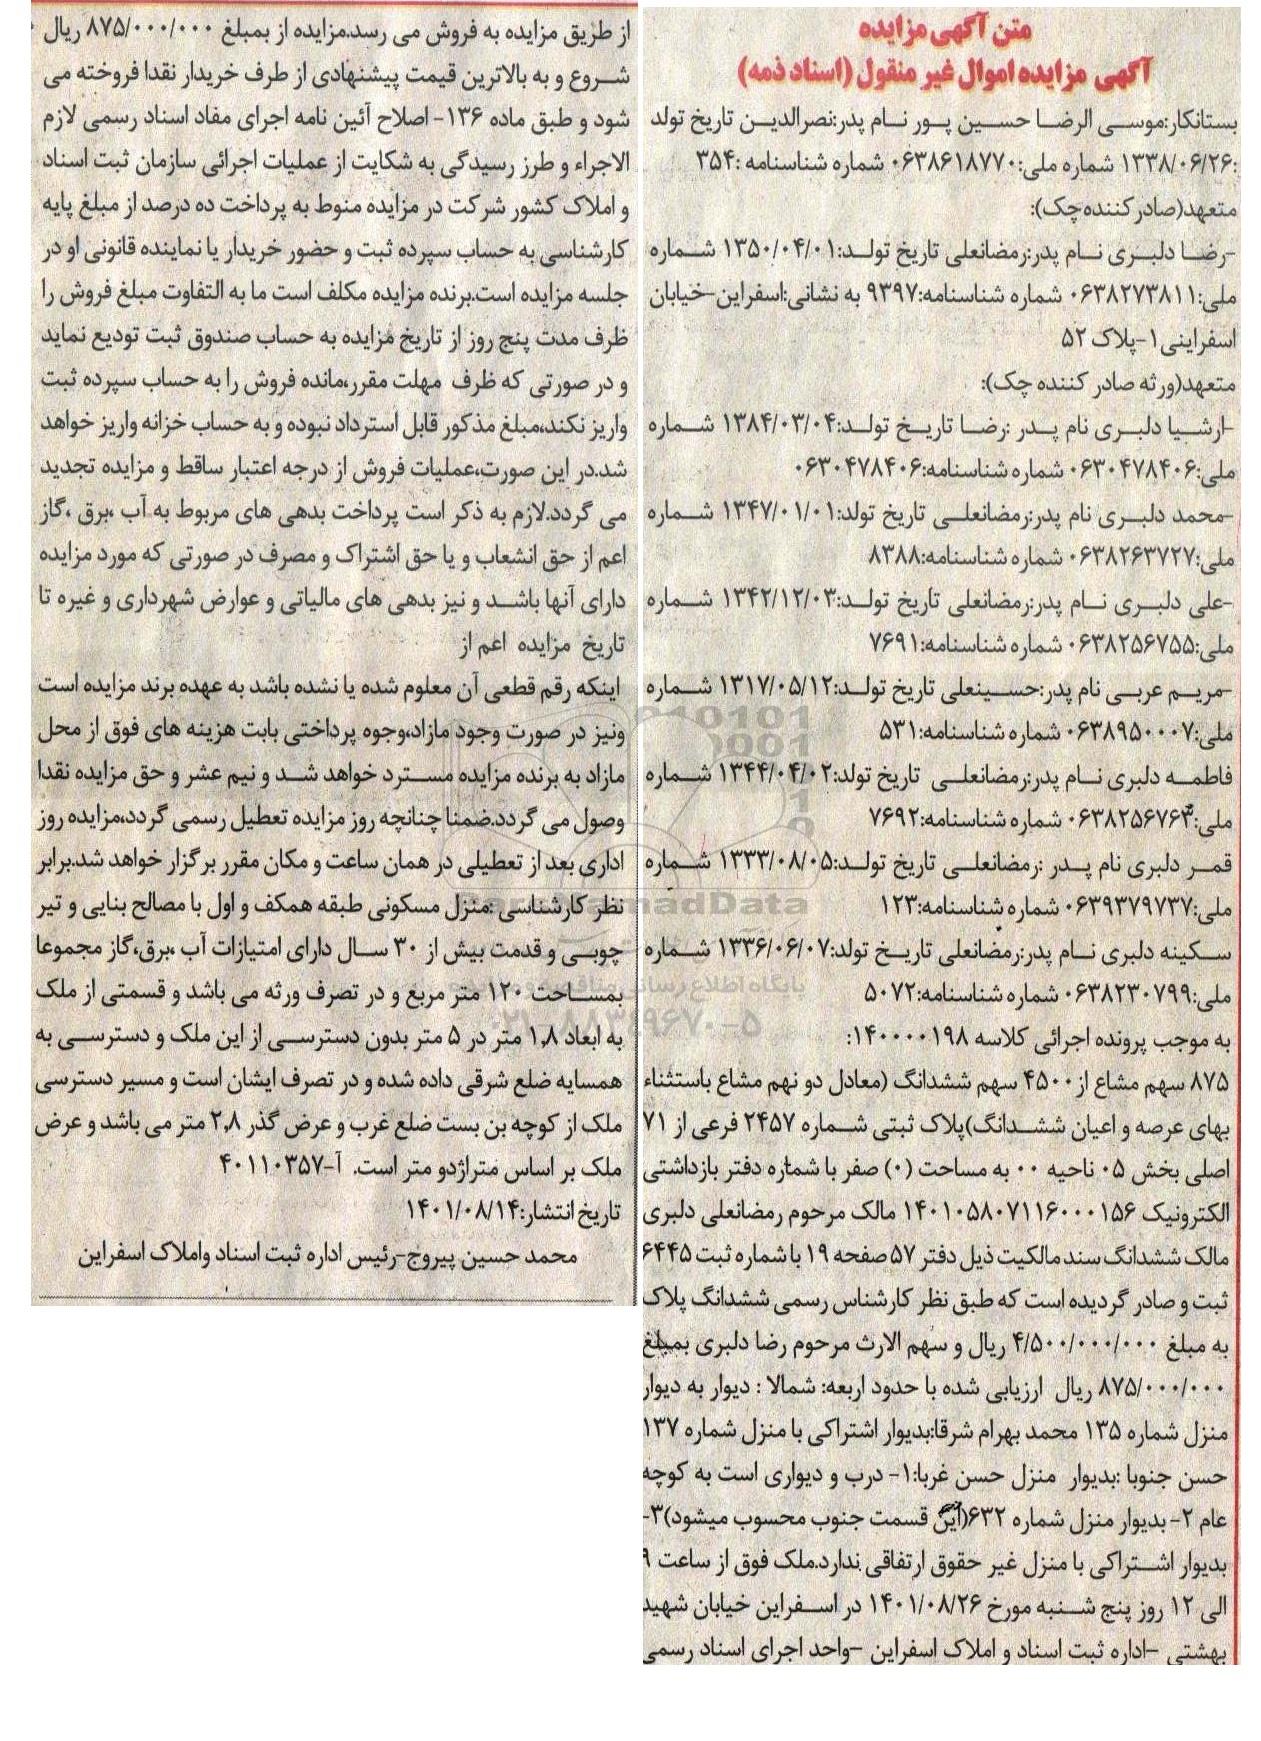 متن آگهی مزایده
آگهی مزایده اموال غیر منقول (اسناد ذمه)
بستانکار:موسی الرضا حسین پور نام پدر:نصرالدین تاریخ تولد
:۱۳۳۸/۰۶/۲۶ شماره ملی:۰۶۳۸۶۱۸۷۷۰ شماره شناسنامه :۳۵۴
متعهد(صادرکننده چک):
-رضا دلبری نام پدر:رمضانعلی تاریخ تولد:۱۳۵۰/۰۴/۰۱ شماره
ملی:۰۶۳۸۲۷۳۸۱۱ شماره شناسنامه:۹۳۹۷ به نشانی:اسفراین-خیابان
اسفراینی۱-پلاک ۵۲
متعهد(ورثه صادر کننده چک):
-ارشیا دلبری نام پدر :رضا تاریخ تولد:۱۳۸۴/۰۳/۰۴ شماره
ملی:۰۶۳۰۴۷۸۴۰۶ شماره شناسنامه:۰۶۳۰۴۷۸۴۰۶
-محمد دلبری نام پدر:رمضانعلی تاریخ تولد:۱۳۴۷/۰۱/۰۱ شماره
ملی:۰۶۳۸۲۶۳۷۲۷ شماره شناسنامه:۸۳۸۸
-علی دلبری نام پدر:رمضانعلی تاریخ تولد:۱۳۴۲/۱۲/۰۳ شماره
ملی:۰۶۳۸۲۵۶۷۵۵ شماره شناسنامه:۷۶۹۱
-مریم عربی نام پدر:حسینعلی تاریخ تولد:۱۳۱۷/۰۵/۱۲ شماره
ملی:۰۶۳۸۹۵۰۰۰۷ شماره شناسنامه:۵۳۱
فاطمه دلبری نام پدر:رمضانعلی تاریخ تولد:۱۳۴۴/۰۴/۰۲ شماره
ملی:۰۶۳۸۲۵۶۷۶۳ شماره شناسنامه:۷۶۹۲
قمر دلبری نام پدر :رمضانعلی تاریخ تولد:۱۳۳۳/۰۸/۰۵ شماره
ملی:۰۶۳۹۳۷۹۷۳۷ شماره شناسنامه:۱۲۳
سکینه دلبری نام پدر:رمضانعلی تاریخ تولد:۱۳۳۶/۰۶/۰۷ شماره
ملی:۰۶۳۸۲۳۰۷۹۹ شماره شناسنامه:۵۰۷۲
به موجب پرونده اجرائی کلاسه ۱۴۰۰۰۰۱۹۸:
۸۷۵ سهم مشاع از۴۵۰۰ سهم ششدانگ (معادل دو نهم مشاع باستثناء
بهای عرصه و اعیان ششدانگ)پلاک ثبتی شماره ۲۴۵۷ فرعی از ۷۱
اصلی بخش ۰۵ ناحیه ۰۰ به مساحت (۰) صفر با شماره دفتر بازداشتی
الکترونیک ۱۴۰۱۰۵۸۰۷۱۱۶۰۰۰۱۵۶ مالک مرحوم رمضانعلی دلبری
مالک ششدانگ سند مالکیت ذیل دفتر ۵۷ صفحه ۱۹ با شماره ثبت ۶۴۴۵
ثبت و صادر گردیده است که طبق نظر کارشناس رسمی ششدانگ پلاک
به مبلغ ۴/۵۰۰/۰۰۰/۰۰۰ ریال و سهم الارث مرحوم رضا دلبری بمبلغ
۸۷۵/۰۰۰/۰۰۰ ریال ارزیابی شده با حدود اربعه: شمالا : دیوار به دیوار
منزل شماره ۱۳۵ محمد بهرام شرقا:بدیوار اشتراکی با منزل شماره ۱۳۷
حسن جنوبا :بدیوار منزل حسن غربا:۱- درب و دیواری است به کوچه
عام ۲- بدیوار منزل شماره ۶۳۲(این قسمت جنوب محسوب میشود)۳-
بدیوار اشتراکی با منزل غیر حقوق ارتفاقی ندارد.ملک فوق از ساعت ۹
الی ۱۲ روز پنج شنبه مورخ ۱۴۰۱/۰۸/۲۶ در اسفراین خیابان شهید
بهشتی -اداره ثبت اسناد و املاک اسفراین -واحد اجرای اسناد رسمی
از طریق مزایده به فروش می رسد.مزایده از بمبلغ ۸۷۵/۰۰۰/۰۰۰ ریال
شروع و به بالاترین قیمت پیشنهادی از طرف خریدار نقدا فروخته می
شود و طبق ماده ۱۳۶- اصلاح آئین نامه اجرای مفاد اسناد رسمی لازم
الاجراء و طرز رسیدگی به شکایت از عملیات اجرائی سازمان ثبت اسناد
و املاک کشور شرکت در مزایده منوط به پرداخت ده درصد از مبلغ پایه
کارشناسی به حساب سپرده ثبت و حضور خریدار یا نماینده قانونی او در
جلسه مزایده است.برنده مزایده مکلف است ما به التفاوت مبلغ فروش را
ظرف مدت پنج روز از تاریخ مزایده به حساب صندوق ثبت تودیع نماید
و در صورتی که ظرف مهلت مقرر،مانده فروش را به حساب سپرده ثبت
واریز نکند،مبلغ مذکور قابل استرداد نبوده و به حساب خزانه واریز خواهد
شد.در این صورت،عملیات فروش از درجه اعتبار ساقط و مزایده تجدید
می گردد.لازم به ذکر است پرداخت بدهی های مربوط به آب ،برق ،گاز
اعم از حق انشعاب و یا حق اشتراک و مصرف در صورتی که مورد مزایده
دارای آنها باشد و نیز بدهی های مالیاتی و عوارض شهرداری و غیره تا
تاریخ مزایده اعم از
اینکه رقم قطعی آن معلوم شده یا نشده باشد به عهده برند مزایده است
ونیز در صورت وجود مازاد،وجوه پرداختی بابت هزینه های فوق از محل
مازاد به برنده مزایده مسترد خواهد شد و نیم عشر و حق مزایده نقدا
وصول می گردد.ضمنا چنانچه روز مزایده تعطیل رسمی گردد،مزایده روز
اداری بعد از تعطیلی در همان ساعت و مکان مقرر برگزار خواهد شد.برابر
نظر کارشناسی :منزل مسکونی طبقه همکف و اول با مصالح بنایی و تیر
چوبی و قدمت بیش از ۳۰ سال دارای امتیازات آب ،برق،گاز مجموعا
بمساحت ۱۲۰ متر مربع و در تصرف ورثه می باشد و قسمتی از ملک
به ابعاد ۱,۸ متر در ۵ متر بدون دسترسی از این ملک و دسترسی به
همسایه ضلع شرقی داده شده و در تصرف ایشان است و مسیر دسترسی
ملک از کوچه بن بست ضلع غرب و عرض گذر ۲,۸ متر می باشد و عرض
ملک بر اساس متراژدو متر است. آ-۴۰۱۱۰۳۵۷
تاریخ انتشار:۱۴۰۱/۰۸/۱۴
محمد حسین پیروج-رئیس اداره ثبت اسناد واملاک اسفراین
ParsNamadData
پایگاه اطلاع رسانی مناقصه و مزایده
۰۲۱-۸۸۳۴۹۶۷۰-۵